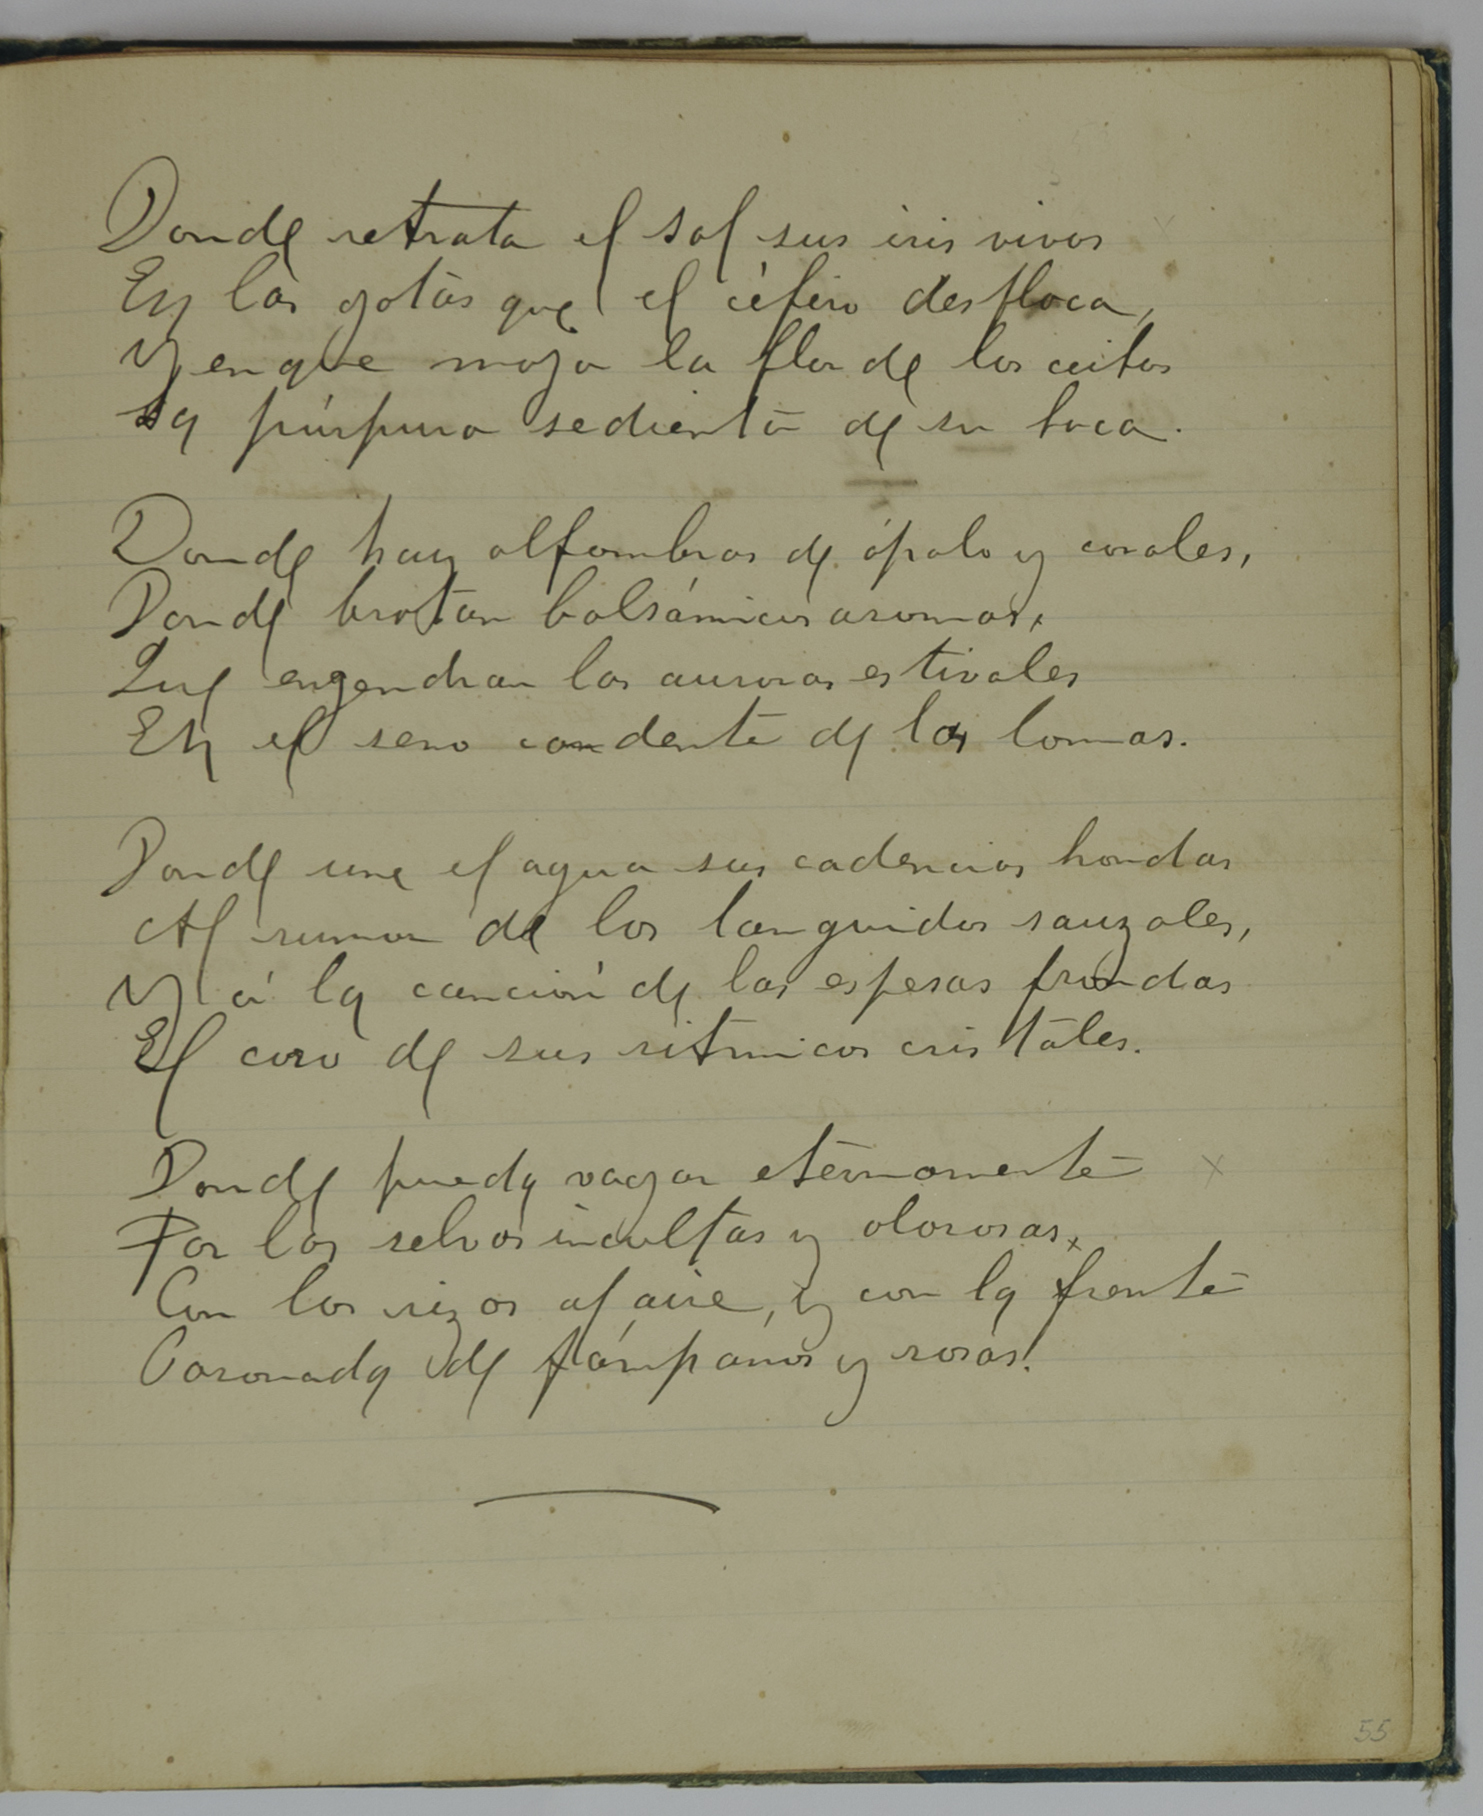 Donde retrata el sol sus iris vivos
En las gotas que el céfiro desfloca,
Y en que moja la flor de los ceibos
La púrpura sedienta de su boca.
Donde hay alfombras de ópalo y corales,
Donde brotan balsámicos aromas,
Que engendran las auroras estivales
En el seno candente de las lomas.
Donde une el agua sus cadencias hondas
Al rumor de los languidos sauzales,
Y á la canción de las espesas frondas
El coro de sus ritmicos cristales.
Donde pueda vagar eternamente
Por las selvas incultas y olorosas,
Con los rizos al aire, y con la frente
Coronada de pámpanos y rosas!
55